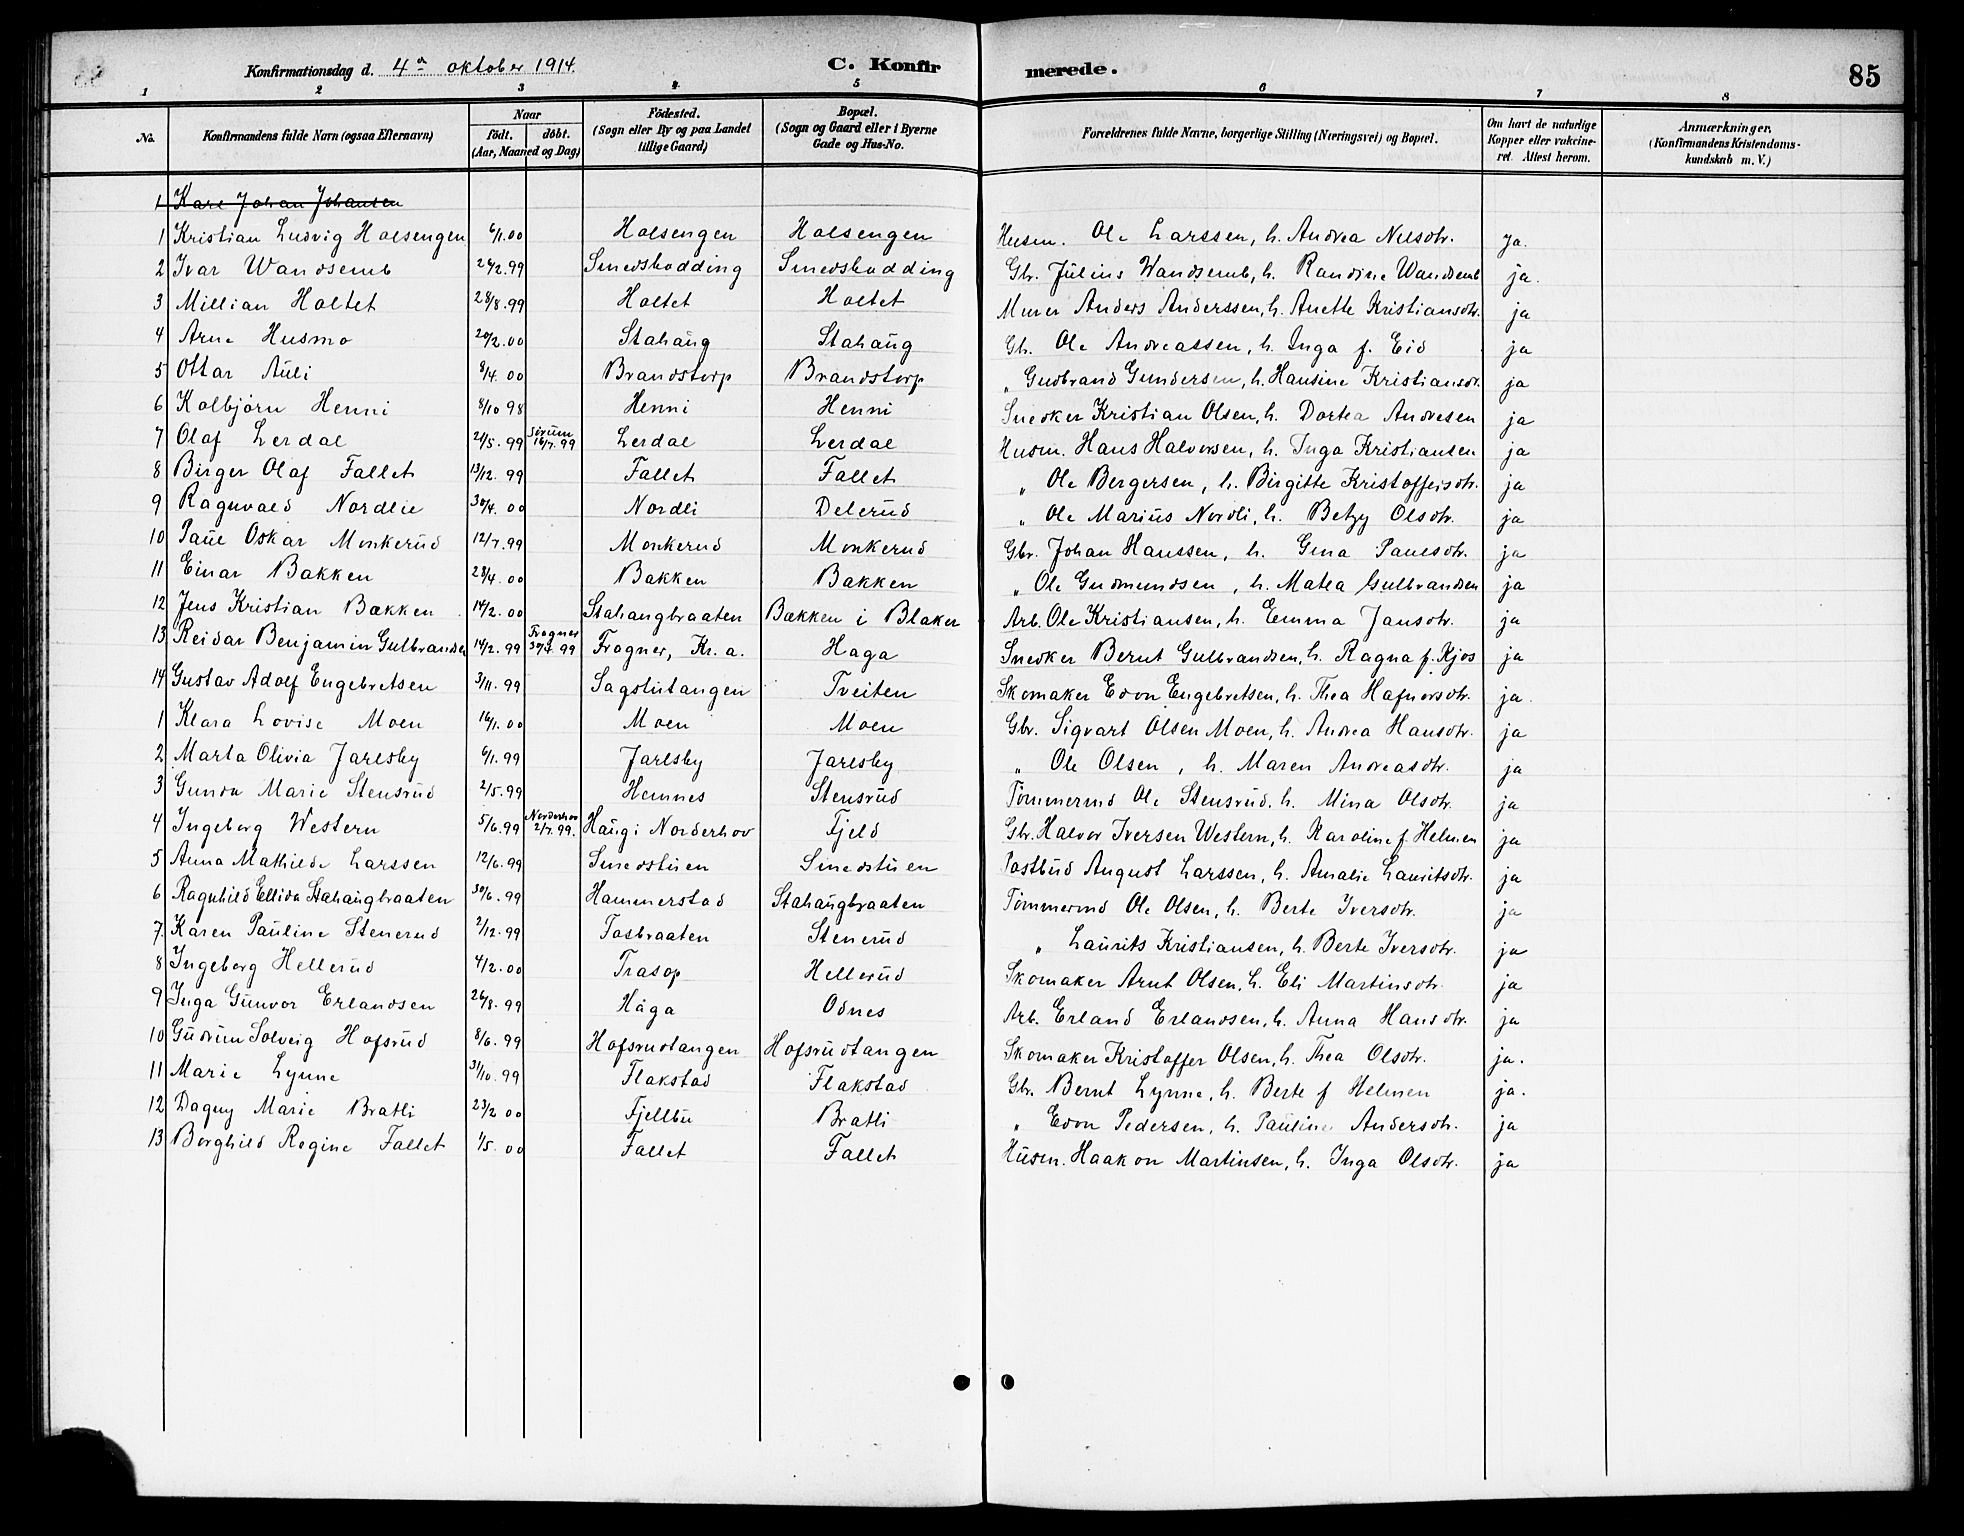 Konfirmationsdag d. 4de oktober 1914. C. Konfirmerede. 85
1 2 3 4 5 6 7 8
No. Konfirmandens fulde Navn (ogsaa Efternavn) Naar født. døbt. (Aar, Maaned og Dag) Födested. (Sogn eller By og paa Landet tillige Gaard) Bopæl. (Sogn og Gaard eller i Byerne Gade og Hus-No. Forældrenes fulde Navne, borgerlige Stilling (Næringsvei) og Bopæl. Om havt de naturlige Kopper eller vakcineret. Attest herom. Anmærkninger. (Konfirmandens Kristendomskundskab m. V.)
1 Karl Johan Johansen
1 Kristian Ludvig Holsengen 6/1.00 Holsengen Holsengen Husm. Ole Larssen, h. Andrea Nilsdtr. ja.
2 Ivar Wandsemb 24/2.99 Smedskodding Smedskodding Gbr. Julius Wandsemb, h. Randine Wandsemb ja.
3 Millian Holtet 28/8.99 Holtet Holtet Murer Anders Anderssen, h. Anette Kristiansdtr. ja
4 Arne Husmo 20/2.00 Stahaug Stahaug Gbr. Ole Andreassen, h. Inga f. Eid ja
5 Ottar Auli 8/4.00 Brandstorp Brandstorp " Gudbrand Gundersen, h. Hansine Kristiansdtr. ja
6 Kolbjörn Henni 8/10 98 Henni Henni Snedker Kristian Olsen, h. Dortea Andresen ja
7 Olaf Lerdal 24/5.99 Sörum 16/7.99 Lerdal Lerdal Husm. Hans Halvorsen, h. Inga Kristiansen ja
8 Birger Olaf Fallet 13/12.99 Fallet Fallet " Ole Bergersen, h. Birgitte Kristoffersdtr. ja
9 Ragnvald Nordlie 30/4.00 Nordli Delerud " Ole Marius Nordli, h. Betzy Olsdtr. ja
10 Paul Oskar Monkerud 12/7.99 Monkerud Monkerud Gbr. Johan Hanssen, h. Gina Paulsdtr. ja
11 Einar Bakken 28/4.00 Bakken Bakken " Ole Gudmundsen, h. Matea Gulbrandsen ja
12 Jens Kristian Bækken 14/2.00 Stahaugbraaten Bækken i Blaker Arb. Ole Kristiansen, h. Emma Jansdtr. ja
13 Reidar Benjamin Gulbrandsen 14/2.99 Frogner 30/7 99 Frogner, Kr.a. Haga Snedker Bernt Gulbrandsen, h. Ragna f. Kjos ja
14 Gustav Adolf Engebretsen 3/11.99 Sagstutangen Tveiten Skomaker Edvn Engebretsen, h. Thea Hafnorsdtr. ja.
1 Klara Lovise Moen 16/1.00 Moen Moen Gbr. Sigvart Olsen Moen, h. Andrea Hansdtr. ja
2 Marta Olivia Jarlsby 6/1.99 Jarlsby Jarlsby " Ole Olsen, h. Maren Andreasdtr. ja
3 Gunda Marie Stensrud 2/5.99 Hemnes Stensrud Tömmermd Ole Stensrud. h. Mina Olsdtr. ja
4 Ingeborg Western 5/6.99 Norderhov 2/7.99. Haug i Norderhov Fjeld Gbr. Halvor Iversen Western, h. Karoline f. Helmen ja
5 Anna Mathilde Larssen 12/6.99 Smedstuen Smedstuen Postbud August Larssen, h. Amalie Lauritsdtr. ja
6 Ragnhild Ellida Stahaugbraaten 30/6.99 Hammerstad Stahaugbraaten Tömmermd Ole Olsen, h. Berte Iversdtr. ja
7. Karen Pauline Stenerud 2/12.99 Tosbraaten Stenerud " Laurits Kristiansen, h. Berte Iversdtr. ja
8 Ingeborg Hellerud 4/2.00 Trasop Hellerud Skomaker Arnt Olsen, h. Eli Martinsdtr. ja
9 Inga Gunvor Erlandsen 26/8.99 Haga Odnes Arb. Erland Erlandsen, h. Anna Hansdtr. ja
10 Gudrun Solveig Hofsrud 8/6.99 Hofsrudtangen Hofsrudtangen Skomaker Kristoffer Olsen, h. Thea Olsdtr. ja.
11 Marie Lynne 31/10.99 Flakstad Flakstad Gbr. Bernt Lynne, h. Berte f Helmen ja.
12 Dagny Marie Bratli 23/2 00 Fjellbu Bratli " Edvn Pedersen, h. Pauline Andersdtr. ja
13 Borghild Regine Fallet 1/5.00 Fallet Fallet Husm. Haakon Martinsen, h. Inga Olsdtr. ja